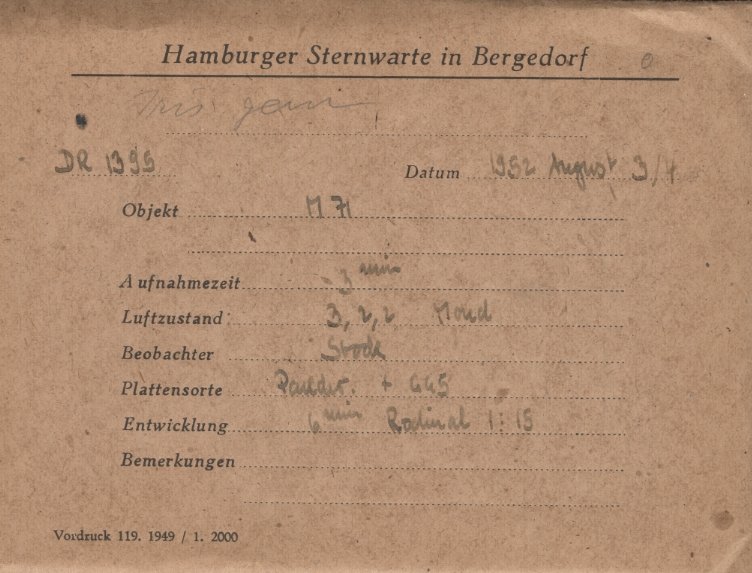 Hamburger Sternwarte in Bergedorf 0
Iris ganz
DR 1395 Datum 1952 August 3/4
Objekt M 71
Aufnahmezeit 3 min
Luftzustand 3, 2, 2 Mond
Beobachter Stock
Plattensorte + GG5
Entwicklung 6 min Rodinal 1:15
Bemerkungen
Vordruck 119. 1949 / 1. 2000